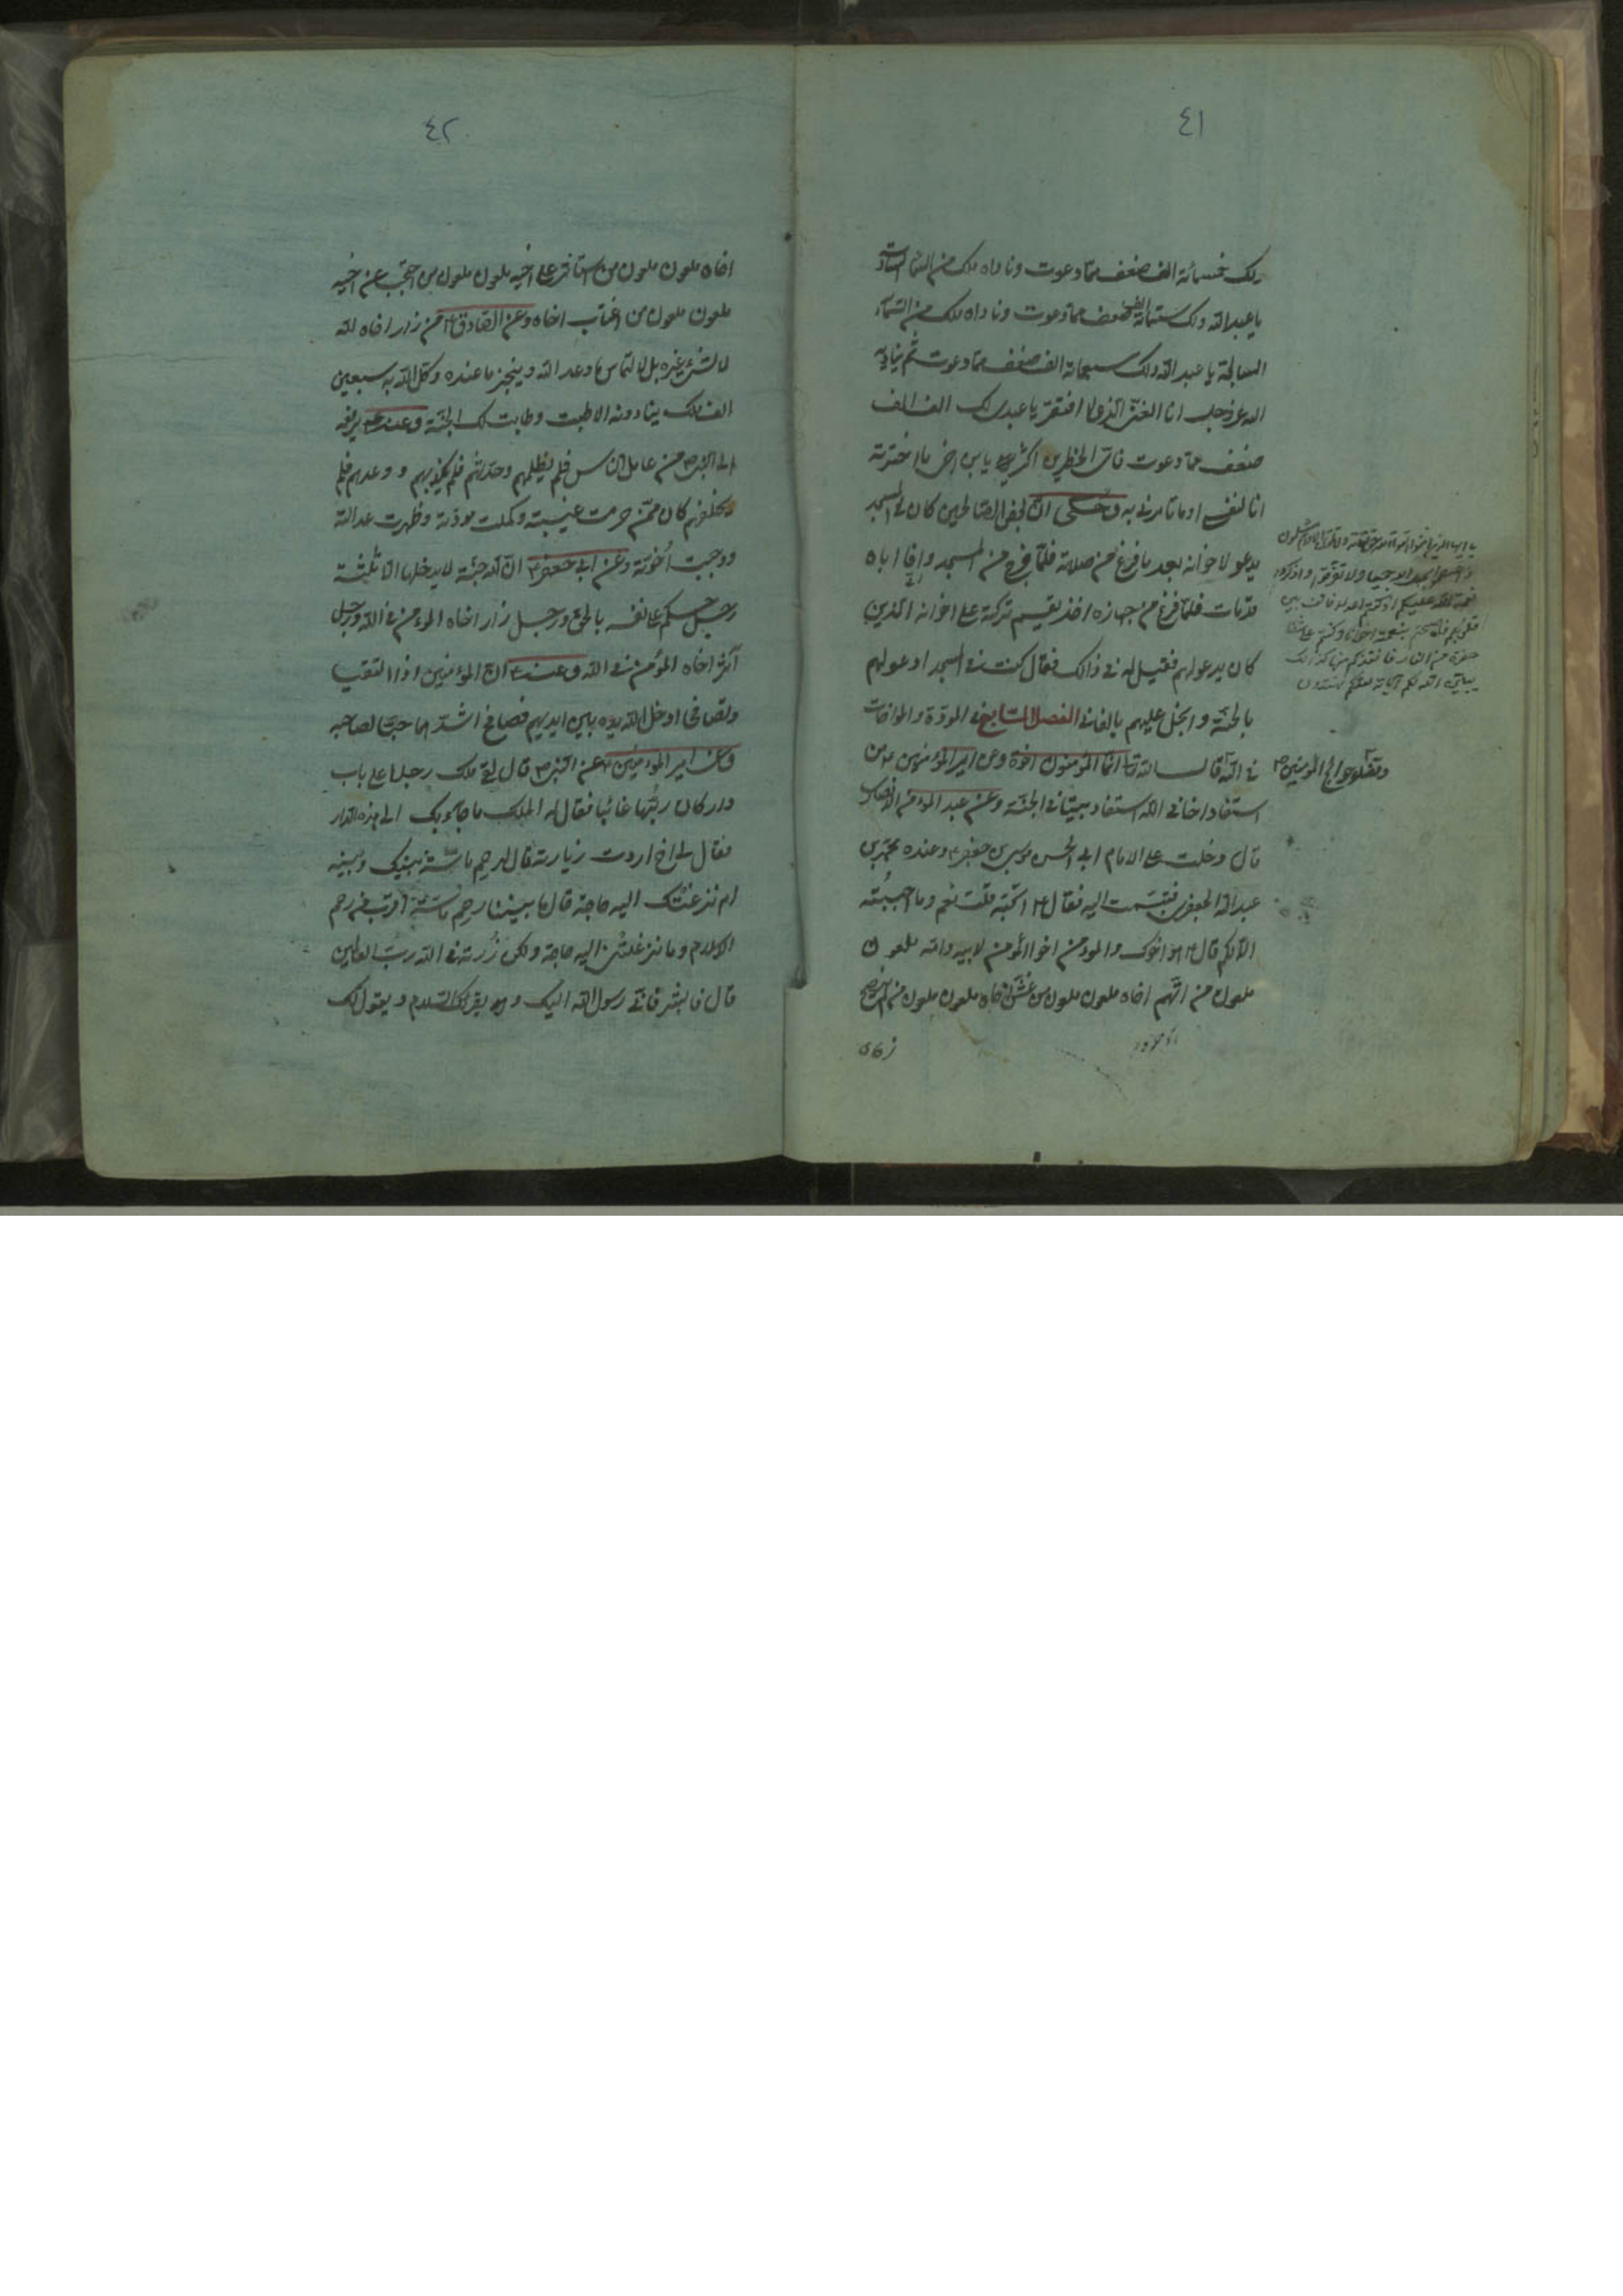 ٤١
ولك خمسمائة الف ضعف مما دعوت وناداه ملك من السماء السادسة
يا عبد الله ولك ستمائة الف ضعف مما دعوت وناداه ملك من السماء
السابعة يا عبد الله ولك سبعمائة الف ضعف مما دعوت ثم يناديه
الله عز وجل انا الغني الذي لا افتقر يا عبدي لك الف الف
ضعف مما دعوت فاي الخطرين اكبر يا بن اخي ما اخترته
انا لنفسي او ما تأمرني به وحكى ان بعض الصالحين كان في المسجد
يدعو لاخوانه بعد ما فرغ من صلاته فلما خرج من المسجد وافا اباه
قد مات فلما فرغ من جهازه اخذ يقسم تركته على اخوانه الذين
كان يدعو لهم فقيل له في ذالك فقال كنت في المسجد ادعو لهم
بالجنة وابخل عليهم بالفاني الفصل السابع في المودة والمواخات
في الله قال الله تعا انما المؤمنون اخوة وعن امير المؤمنين ع من
استفاد اخا في الله استفاد بيتا في الجنة وعن عبد المؤمن الانصاري
قال دخلت على الامام ابي الحسن موسى بن جعفر ع وعنده محمد بن
عبد الله الجعفري فتبسمت اليه فقال ع اتحبه قلت نعم وما احببته
الا لكم قال ع هو اخوك والمؤمن اخو المؤمن لابيه وامه ملعون
ملعون من اتهم اخاه ملعون ملعون من غش اخاه ملعون ملعون من لم ينصح
وقضاء حوائج المومنين
يا ايها الذين امنوا اتقوا الله حق تقاته ولا تموتن الا وانتم مسلمون
واعتصموا بحبل الله جميعا ولا تفرقوا واذكروا
نعمة الله عليكم اذ كنتم اعداء فالف بين
قلوبكم فاصبحتم بنعمته اخوانا وكنتم على شفا
حفرة من النار فانقذكم منها كذلك
يبين الله لكم اياته لعلكم تهتدون
٤٢
اخاه ملعون ملعون من استاثر على اخيه ملعون ملعون من احتجب عن اخيه
ملعون ملعون من اغتاب اخاه وعن الصادق ع من زار اخاه لله
لا لشيء غيره بل لالتماس ما وعد الله وينجز ما عنده وكل الله به سبعين
الف ملك ينادونه الا طبت وطابت لك الجنة وعنه ع يرفعه
الى النبي ص من عامل الناس فلم يظلمهم وحدثهم فلم يكذبهم ووعدهم فلم
يخلفهم كان ممن حرمت غيبته وكملت مروته وظهرت عدالته
ووجبت اخوته وعن ابي جعفر ع ان لله جنة لا يدخلها الا ثلثة
رجل حكم على نفسه بالحق ورجل زار اخاه المؤمن في الله ورجل
آثر اخاه المؤمن في الله وعنه ع ان المؤمنين اذا التقيا
وتصافحا ادخل الله يده بين ايديهم فصافح اشدهما حبا لصاحبه
وعن امير المؤمنين ع عن النبي ص قال لقي ملك رجلا على باب
دار كان ربها غائبا فقال له الملك ما جاء بك الى هذه الدار
فقال لي اخ اردت زيارته قال لرحم ماسة بينك وبينه
ام نزعتك اليه حاجة قال ما بيننا رحم ماسة اقرب من رحم
الاسلام وما نزعتني اليه حاجة ولكن زرته في الله رب العالمين
قال فابشر فاني رسول الله اليك وهو يقرئك السلام ويقول لك